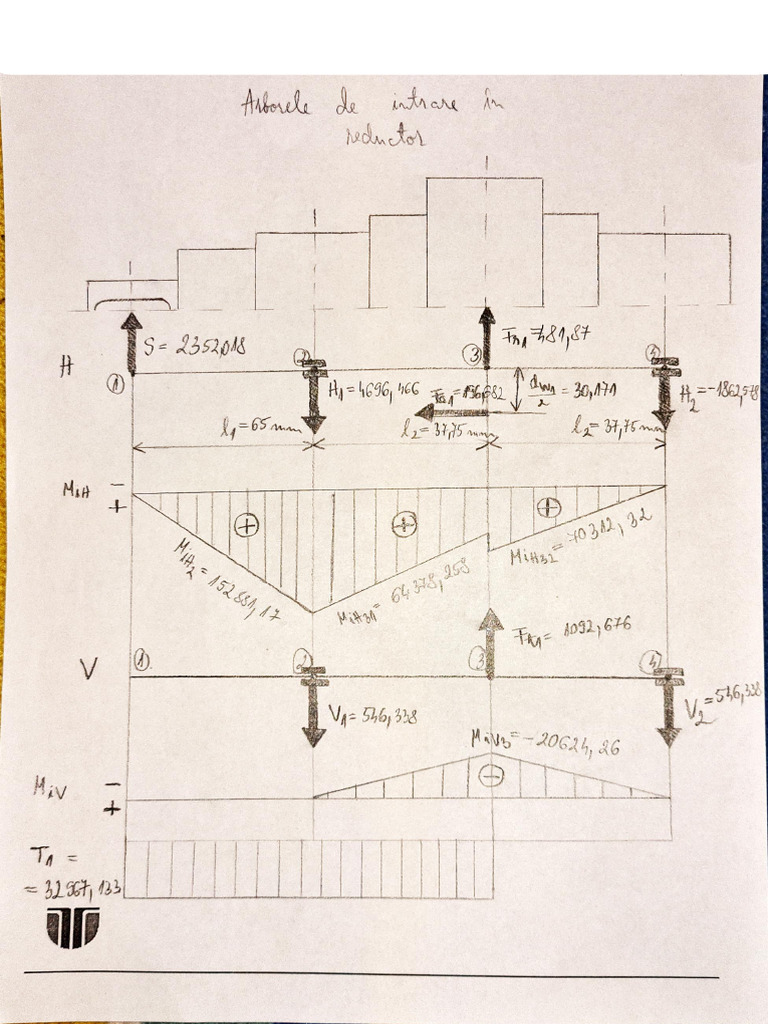 Arborele de intrare în
reductor
S = 2352,018
Fr1 = 481,87
H
1
2
3
4
H1 = 4696,466
Fa1 = 196,682
dw1/2 = 30,171
H2 = -1862,578
l1 = 65 mm
l2 = 37,75 mm
l2 = 37,75 mm
MiH
-
+
+
+
+
MiH2 = 152881,17
MiH31 = 64378,258
MiH32 = 70312,32
V
1
2
3
4
Ft1 = 1092,676
V1 = 546,338
V2 = 546,338
MiV3 = -20624,26
MiV
-
+
-
T1 =
= 32967,133